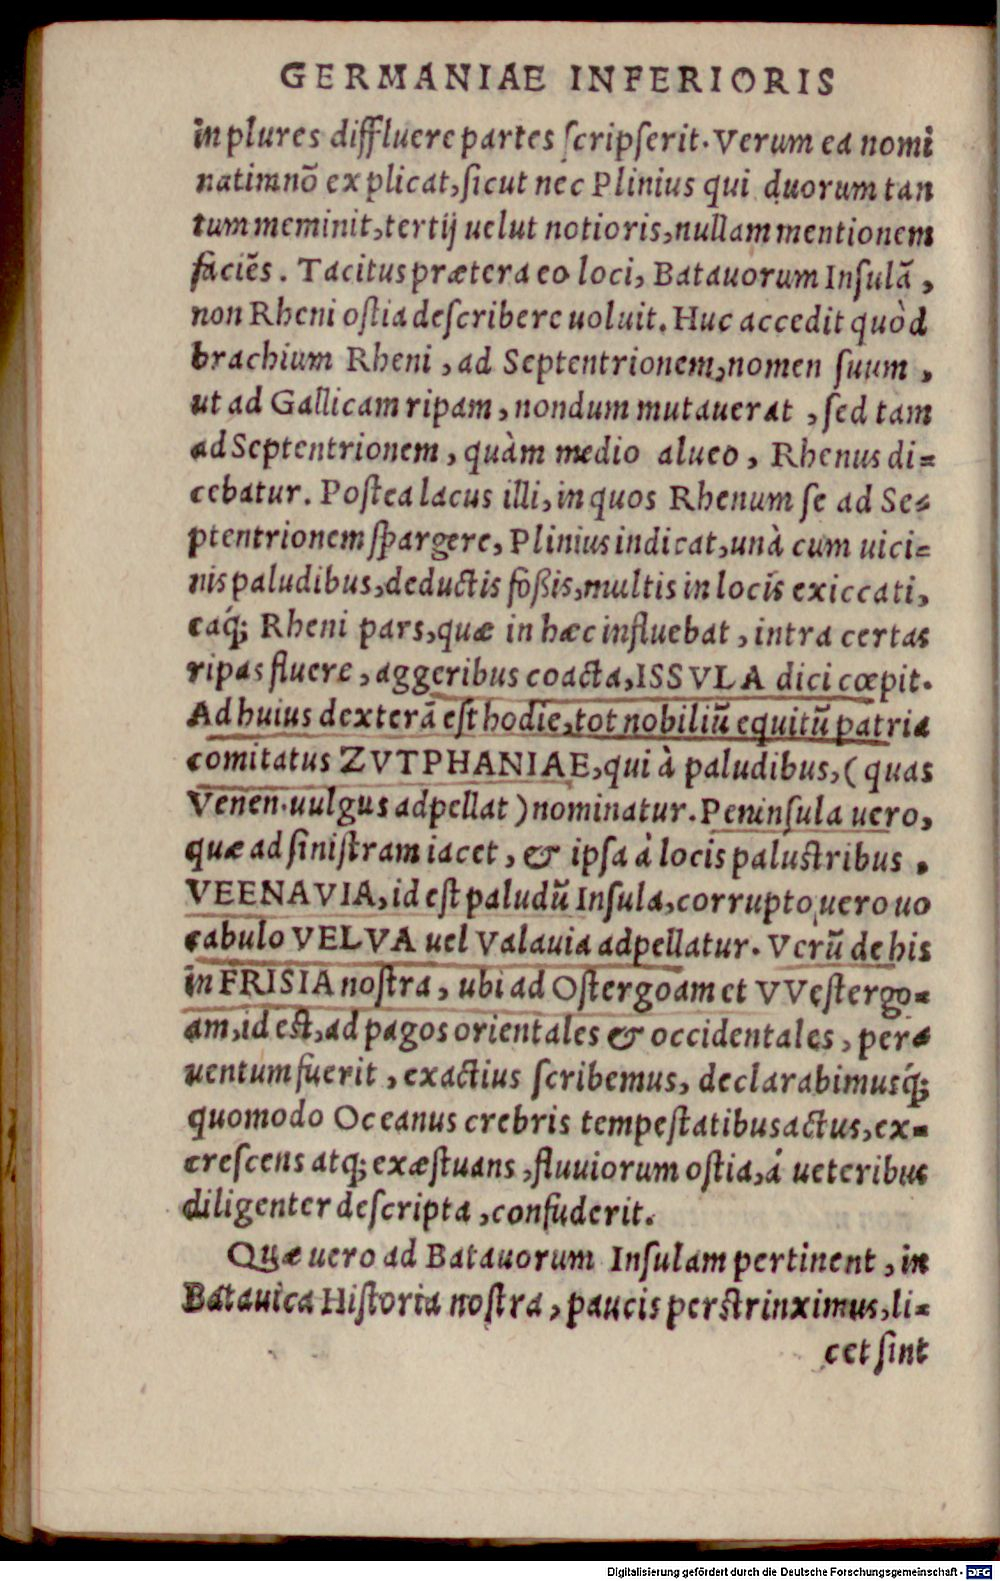 GERMANIAE INFERIORIS
in plures diffluere partes ſcripſerit. Verum ea nomi
natim nō explicat, ſicut nec Plinius qui duorum tan
tum meminit, tertij uelut notioris, nullam mentionem
faciēs. Tacitus præterea eo loci, Batauorum Inſulā,
non Rheni oſtia deſcribere uoluit. Huc accedit quòd
brachium Rheni, ad Septentrionem, nomen ſuum,
ut ad Gallicam ripam, nondum mutauerat, ſed tam
ad Septentrionem, quàm medio alueo, Rhenus di=
cebatur. Poſtea lacus illi, in quos Rhenum ſe ad Se=
ptentrionem ſpargere, Plinius indicat, unà cum uici=
nis paludibus, deductis foßis, multis in locis exiccati,
eaq́; Rheni pars, quæ in hæc influebat, intra certas
ripas fluere, aggeribus coacta, ISSVLA dici cœpit.
Ad huius dexterā eſt hodie, tot nobiliū equitū patria
comitatus ZVTPHANIAE, qui à paludibus, (quas
Venen. uulgus adpellat) nominatur. Peninſula uero,
quæ ad ſiniſtram iacet, & ipſa à locis paluſtribus,
VEENAVIA, id eſt paludū Inſula, corrupto uero uo
cabulo VELVA uel Valauia adpellatur. Verū de his
in FRISIA noſtra, ubi ad Oſtergoam et VVeſtergo=
am, id eſt, ad pagos orientales & occidentales, per=
uentum fuerit, exactius ſcribemus, declarabimusq́;
quomodo Oceanus crebris tempeſtatibus actus, ex=
creſcens atq; exæſtuans, fluuiorum oſtia, á ueteribus
diligenter deſcripta, confuderit.
Quæ uero ad Batauorum Inſulam pertinent, in
Batauica Hiſtoria noſtra, paucis perſtrinximus, li=
cet ſint
Digitalisierung gefördert durch die Deutsche Forschungsgemeinschaft - DFG